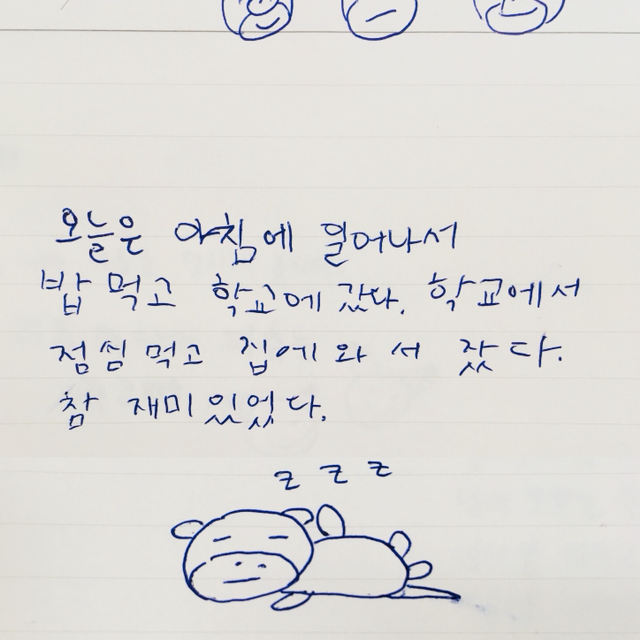 오늘은 아침에 일어나서
밥 먹고 학교에 갔다. 학교에서
점심 먹고 집에 와서 잤다.
참 재미있었다.
z z z